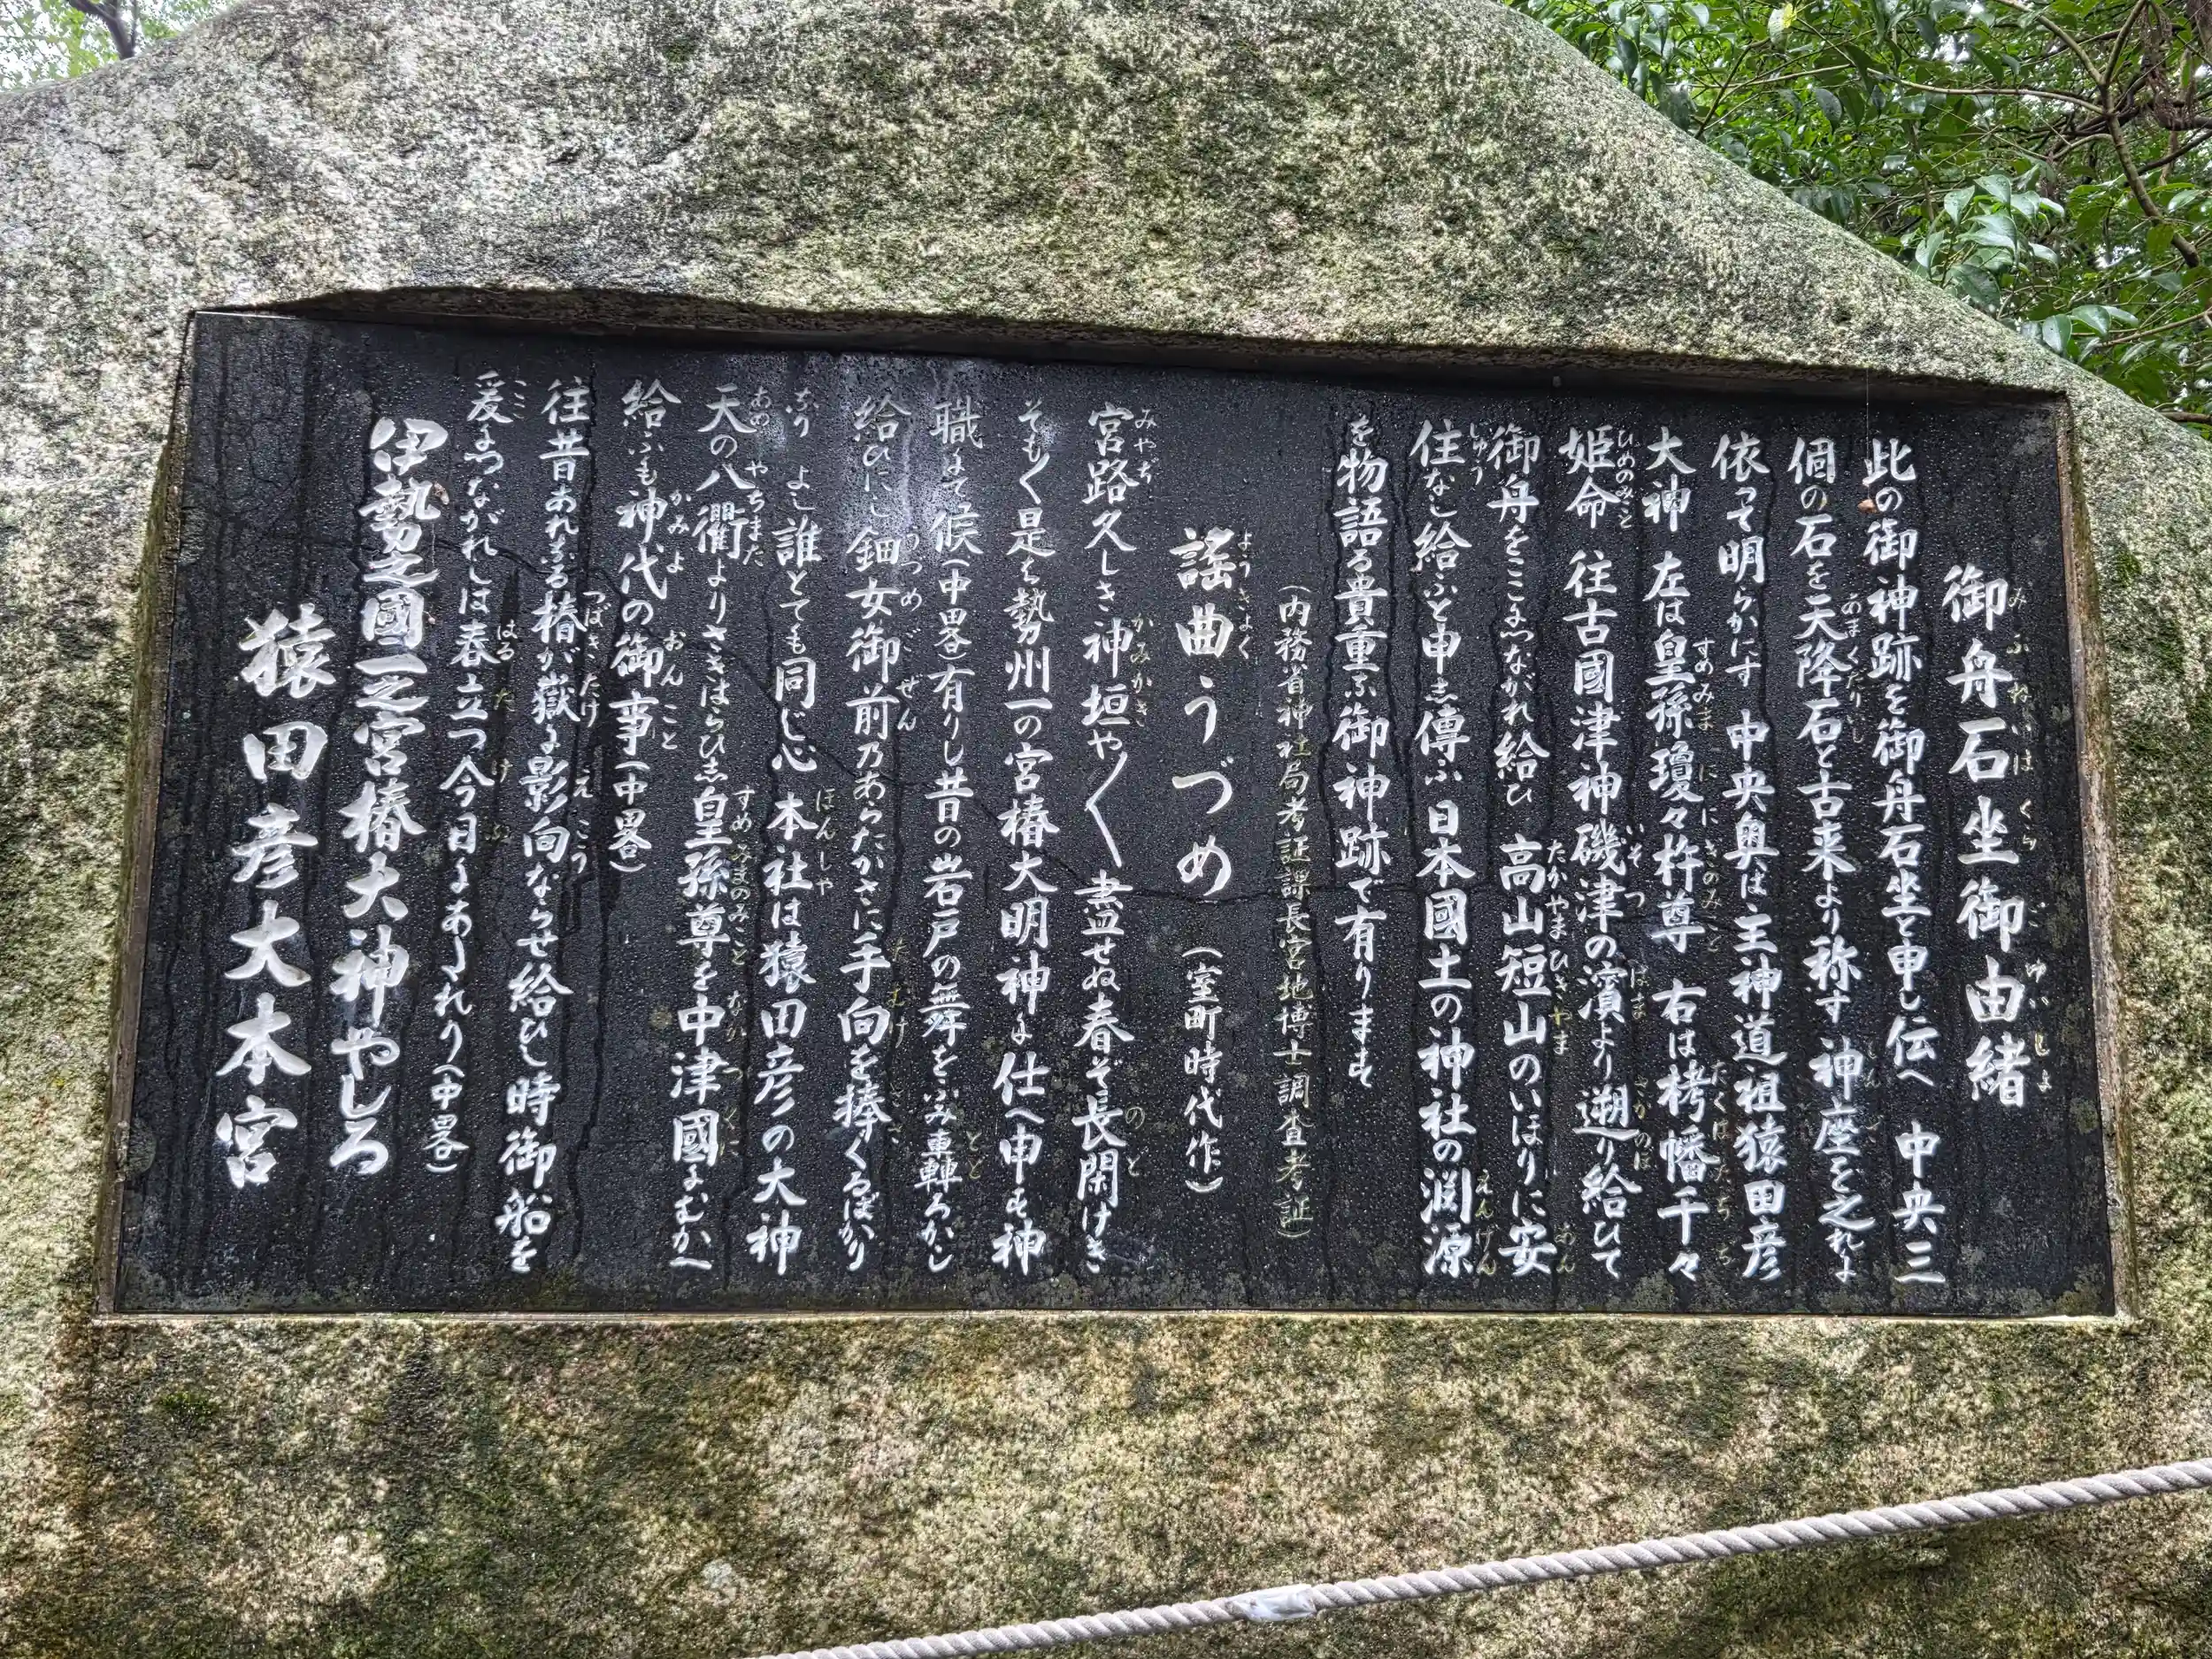 御舟石坐御由緒
此の御神跡を御舟石坐と申し伝へ 中央三
個の石を天降石と古来より称す 神座を之れに
依って明らかにす 中央奥は主神道祖猿田彦
大神 左は皇孫瓊々杵尊 右は栲幡千々
姫命 往古國津神磯津の濱より遡り給ひて
御舟をここにつながれ給ひ 高山短山のいほりに安
住なし給ふと申し傳ふ 日本國土の神社の渕源
を物語る貴重な御神跡で有ります
(内務省神社局考証課長宮地博士調査考証)
謡曲うづめ (室町時代作)
宮路久しき神垣や〱 盡せぬ春ぞ長閑けき
そも〱是は勢州一の宮椿大明神に仕へ申す神
職にて候(中畧)有りし昔の岩戸の舞をふみ轟ろかし
給ひにし鈿女御前乃あらたかさに手向を捧ぐるばかり
なり よし誰とても同じ心 本社は猿田彦の大神
天の八衢よりさきはらひし皇孫尊を中津國にむかへ
給ふも神代の御事(中畧)
往昔あれなる椿が嶽に影向ならせ給ひし時御船を
爰につながれしは春立つ今日にあたれり(中畧)
伊勢之國一之宮椿大神やしろ
猿田彦大本宮